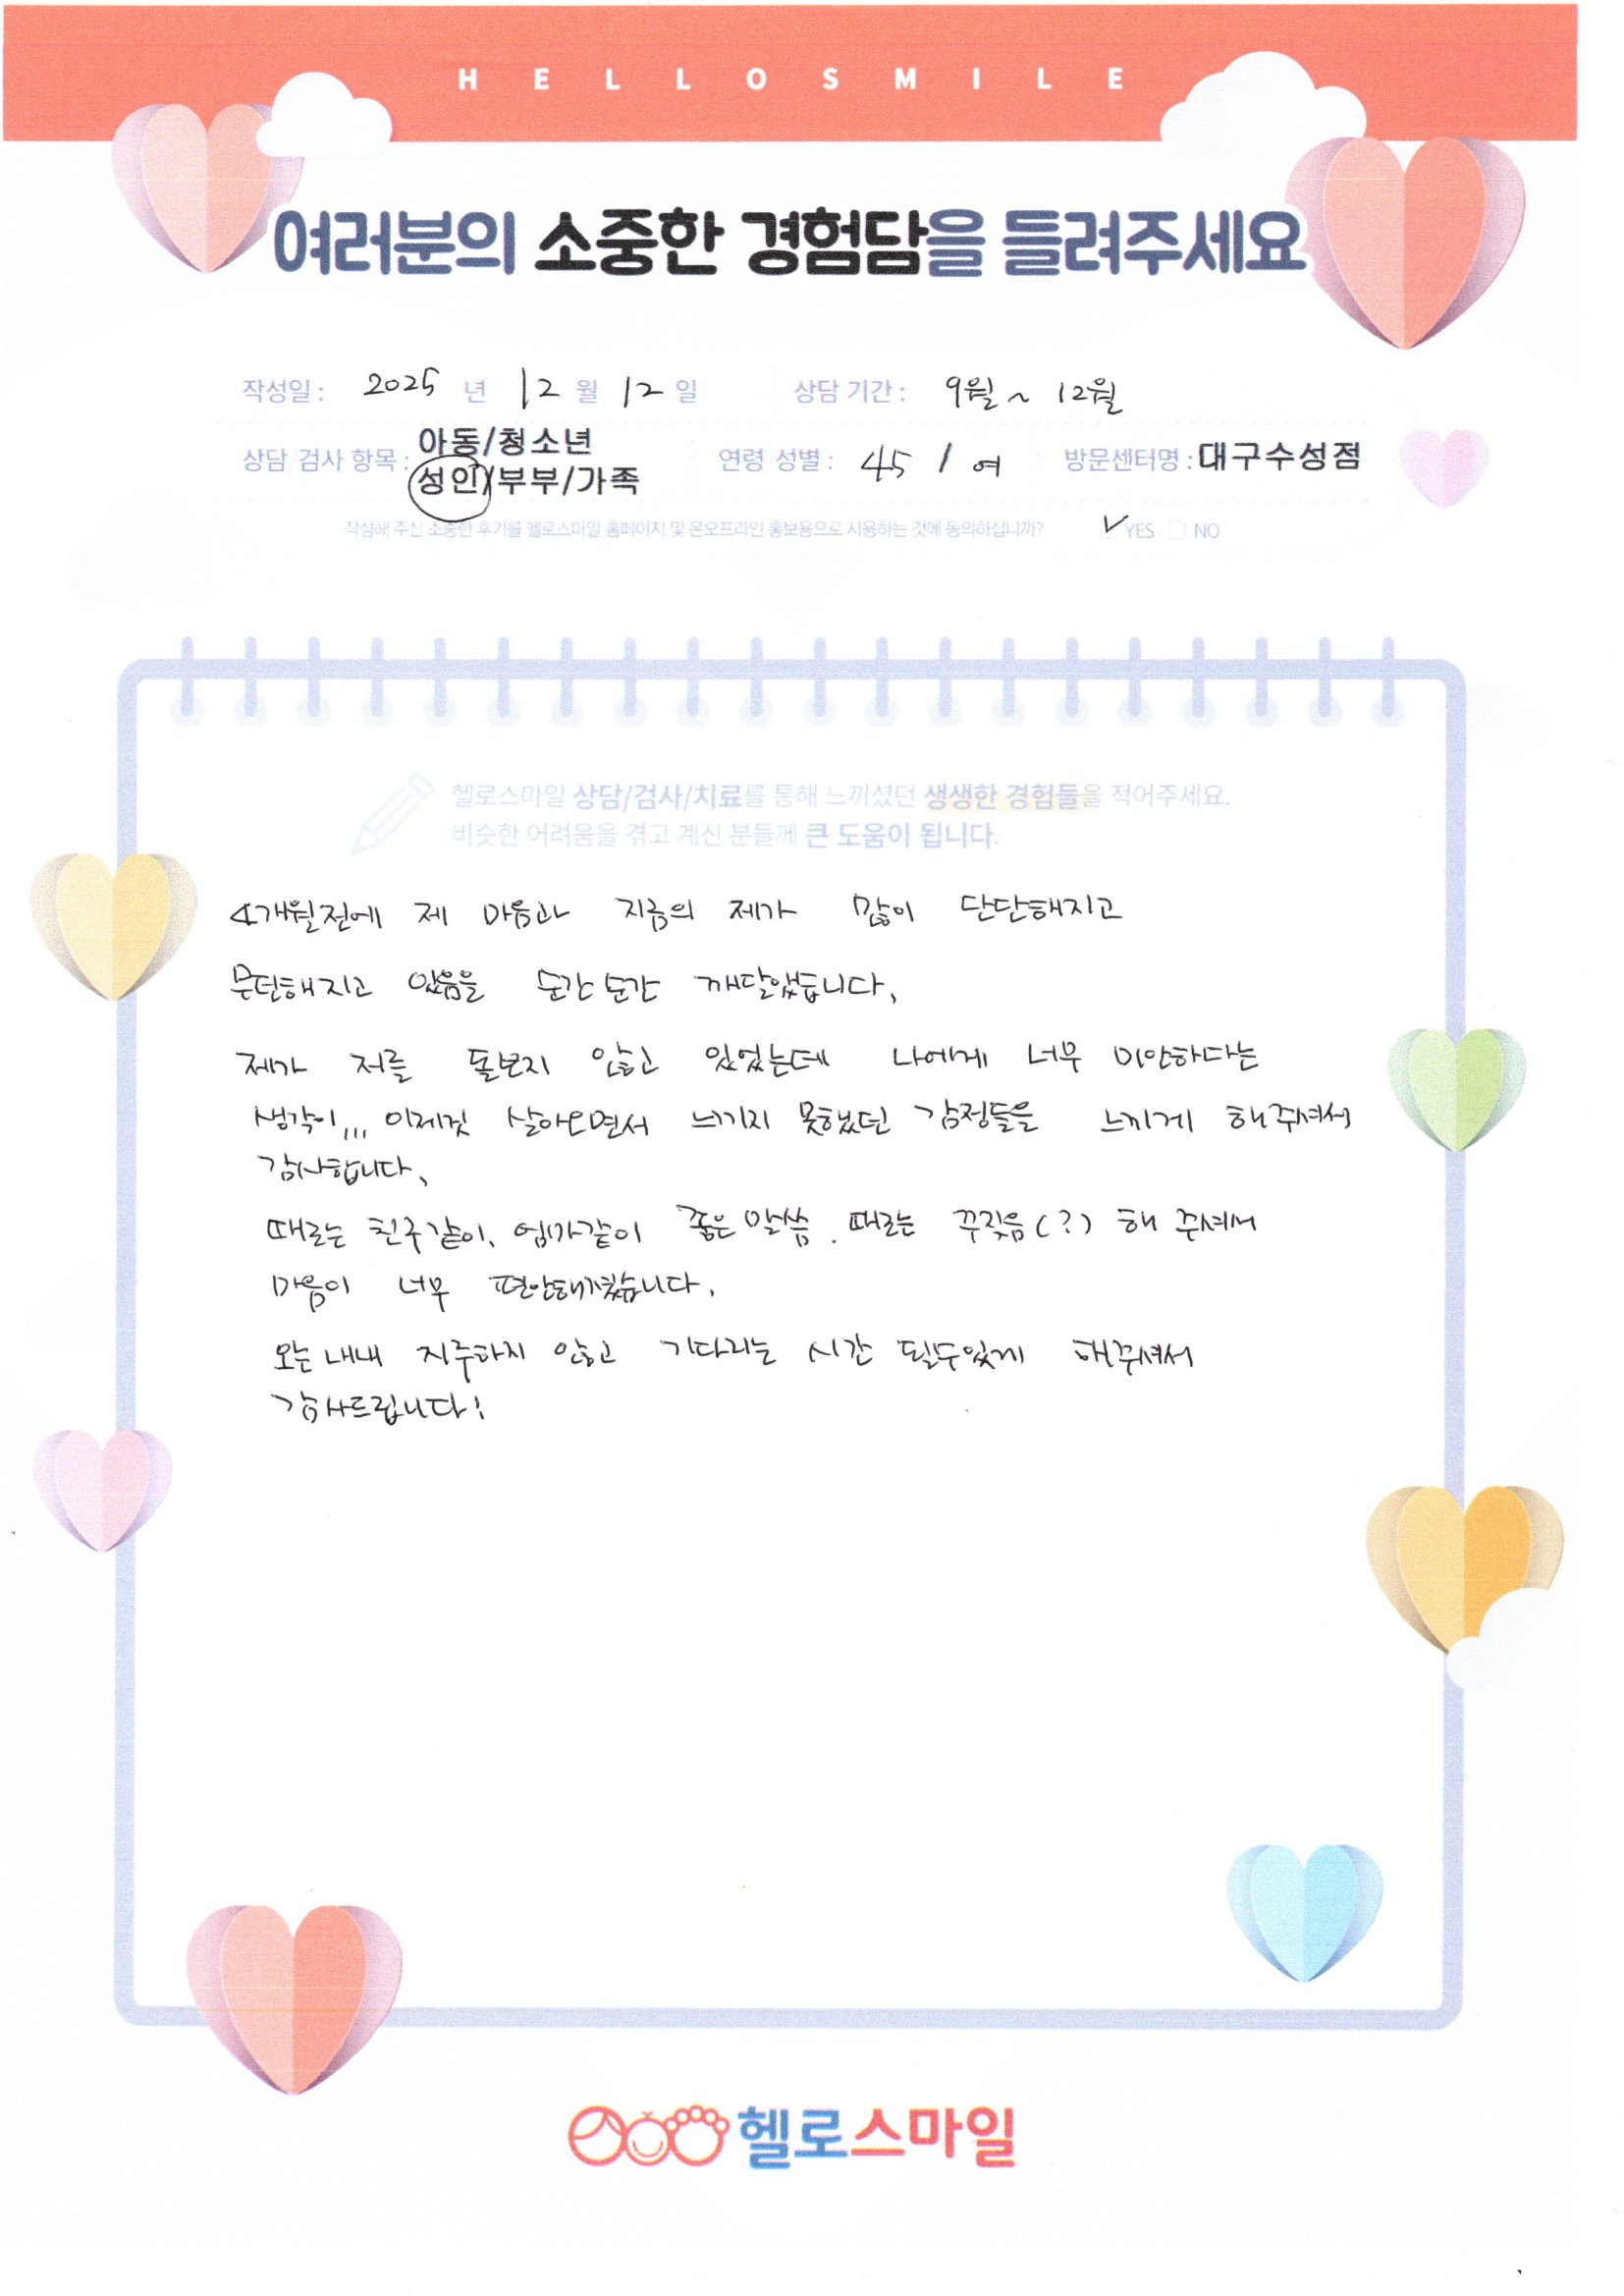 HELLOSMILE
여러분의 소중한 경험담을 들려주세요
작성일 : 2025 년 12 월 12 일 상담 기간 : 9월 ~ 12월
상담 검사 항목 : 아동/청소년 성인/부부/가족 연령 성별 : 45 / 여 방문센터명 : 대구수성점
작성해 주신 소중한 후기를 헬로스마일 홈페이지 및 온오프라인 홍보용으로 사용하는 것에 동의하십니까? ✓ YES □ NO
헬로스마일 상담/검사/치료를 통해 느끼셨던 생생한 경험들을 적어주세요.
비슷한 어려움을 겪고 계신 분들께 큰 도움이 됩니다.
4개월전에 제 마음과 지금의 제가 많이 단단해지고
무던해지고 있음을 순간순간 깨달았습니다.
제가 저를 돌보지 않고 있었는데 나에게 너무 미안하다는
생각이... 이제껏 살아오면서 느끼지 못했던 감정들을 느끼게 해주셔서
감사합니다.
때로는 친구같이. 엄마같이 좋은말씀. 때로는 꾸짖음(?) 해 주셔서
마음이 너무 편안해졌습니다.
오는내내 지루하지 않고 기다리는 시간 될수있게 해주셔서
감사드립니다!
헬로스마일